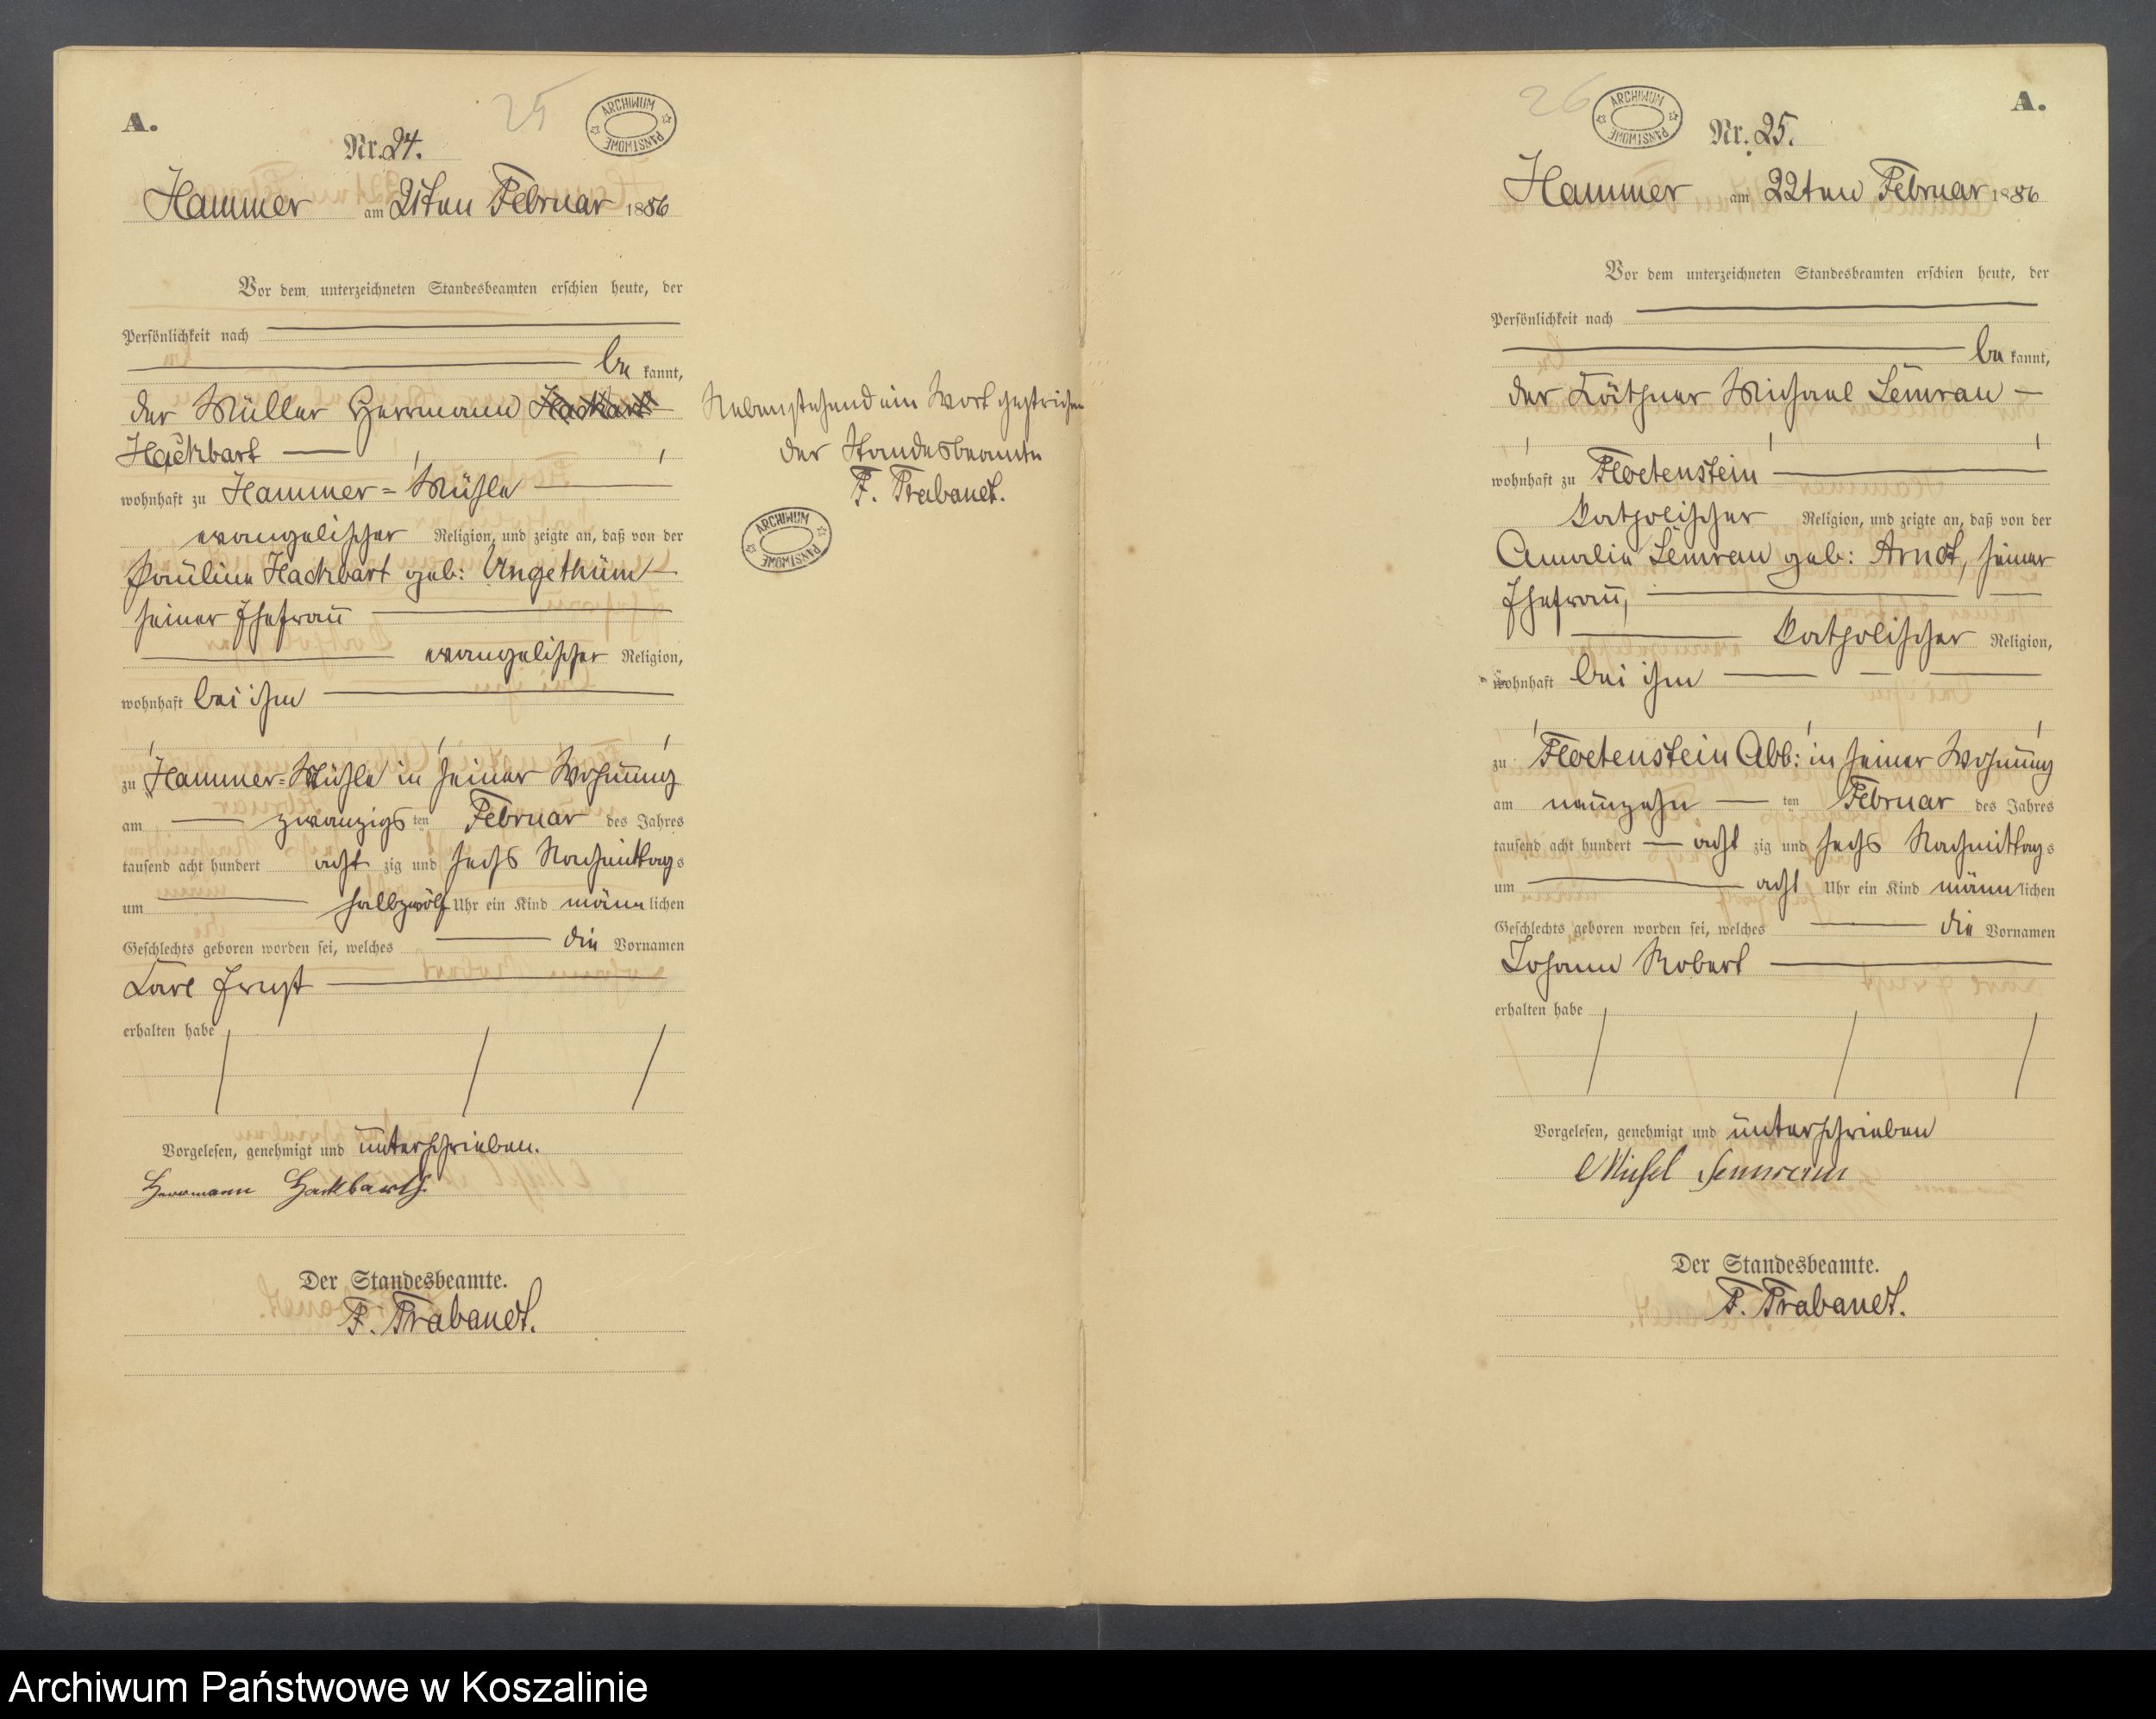 25
ARCHIWUM PAŃSTWOWE
A.
Nr. 24.
Hammer am 21ten Februar 1886
Vor dem unterzeichneten Standesbeamten erschien heute, der
Persönlichkeit nach
be kannt,
der Müller Herrmann Hackbart
Hackbart
wohnhaft zu Hammer=Mühle
evangelischer Religion, und zeigte an, daß von der
Pauline Hackbart geb: Ungethüm
seiner Ehefrau
evangelischer Religion,
wohnhaft bei ihm
zu Hammer=Mühle in seiner Wohnung
am zwanzigs ten Februar des Jahres
tausend acht hundert acht zig und sechs Nachmittag s
um halbzwölf Uhr ein Kind männ lichen
Geschlechts geboren worden sei, welches die Vornamen
Carl Ernst
erhalten habe
Vorgelesen, genehmigt und unterschrieben.
Herrmann Hackbarth.
Der Standesbeamte.
F. Trabandt.
Nebenstehend ein Wort gestrichen
der Standesbeamte
F. Trabandt.
ARCHIWUM PAŃSTWOWE
26
ARCHIWUM PAŃSTWOWE
A.
Nr. 25.
Hammer am 22ten Februar 1886
Vor dem unterzeichneten Standesbeamten erschien heute, der
Persönlichkeit nach
be kannt,
der Käthner Michael Lemran
wohnhaft zu Floetenstein
katholischer Religion, und zeigte an, daß von der
Amalie Lemran geb: Arndt, seiner
Ehefrau,
katholischer Religion,
wohnhaft bei ihm
zu Floetenstein Abb: in seiner Wohnung
am neunzehn ten Februar des Jahres
tausend acht hundert acht zig und sechs Nachmittag s
um acht Uhr ein Kind männ lichen
Geschlechts geboren worden sei, welches die Vornamen
Johann Robert
erhalten habe
Vorgelesen, genehmigt und unterschrieben
Der Standesbeamte.
F. Trabandt.
Archiwum Państwowe w Koszalinie